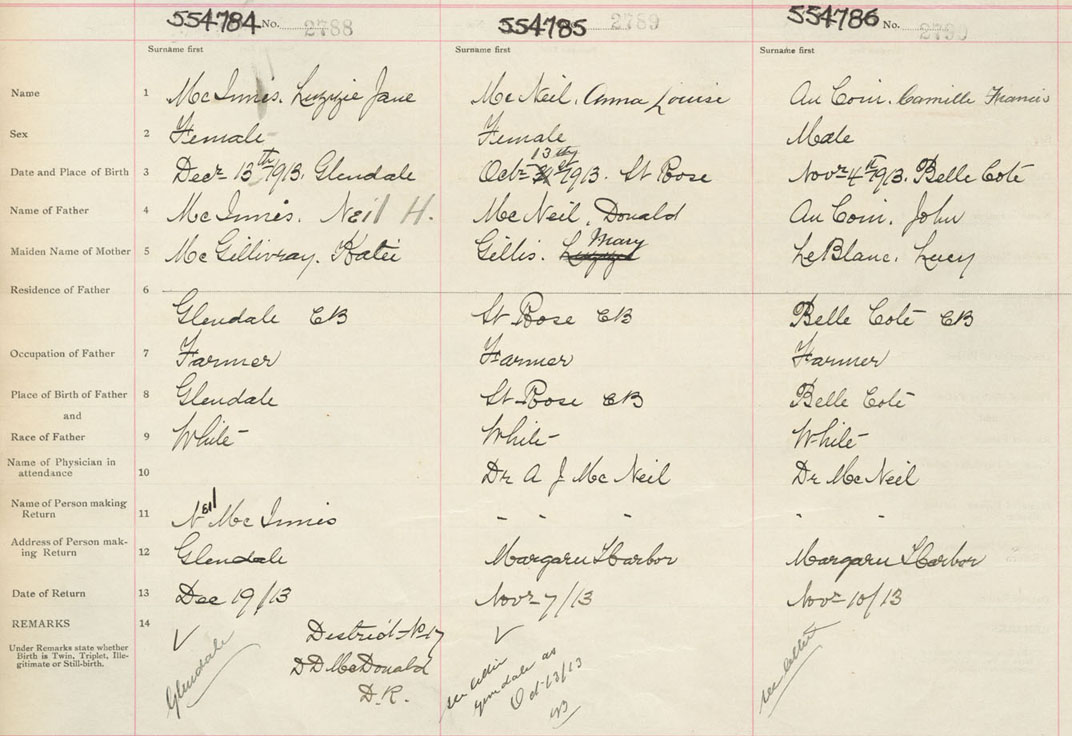 554784 No. 2788 554785 No. 2789 554786 No. 2790
Surname first Surname first Surname first
Name 1 McInnis. Luzzie Jane McNeil. Anna Louise AuCoin. Camille Francis
Sex 2 Female Female Male
13th
Date and Place of Birth 3 Decr 13th 1913. Glendale Octr 1913. St Rose Novr 4th 1913. Belle Cote
Name of Father 4 McInnis. Neil H. McNeil, Donald AuCoin. John
Maiden Name of Mother 5 McGillivray. Katie Gillis. Mary LeBlanc. Lucy
Residence of Father 6
Glendale CB St Rose CB Belle Cote CB
Occupation of Father 7 Farmer Farmer Farmer
Place of Birth of Father 8 Glendale St Rose CB Belle Cote
and
Race of Father 9 White White White
Name of Physician in
attendance 10 Dr A J McNeil Dr McNeil
Name of Person making
Return 11 Neil McInnis - - - - -
Address of Person mak-
ing Return 12 Glendale Margaree Harbor Margaree Harbor
Date of Return 13 Dec 19/13 Novr 7/13 Novr 10/13
REMARKS 14
Under Remarks state whether
Birth is Twin, Triplet, Ille-
gitimate or Still-birth.
Glendale
District No 17
D D McDonald
D.R.
see letter
date as
Oct 13/13
see letter